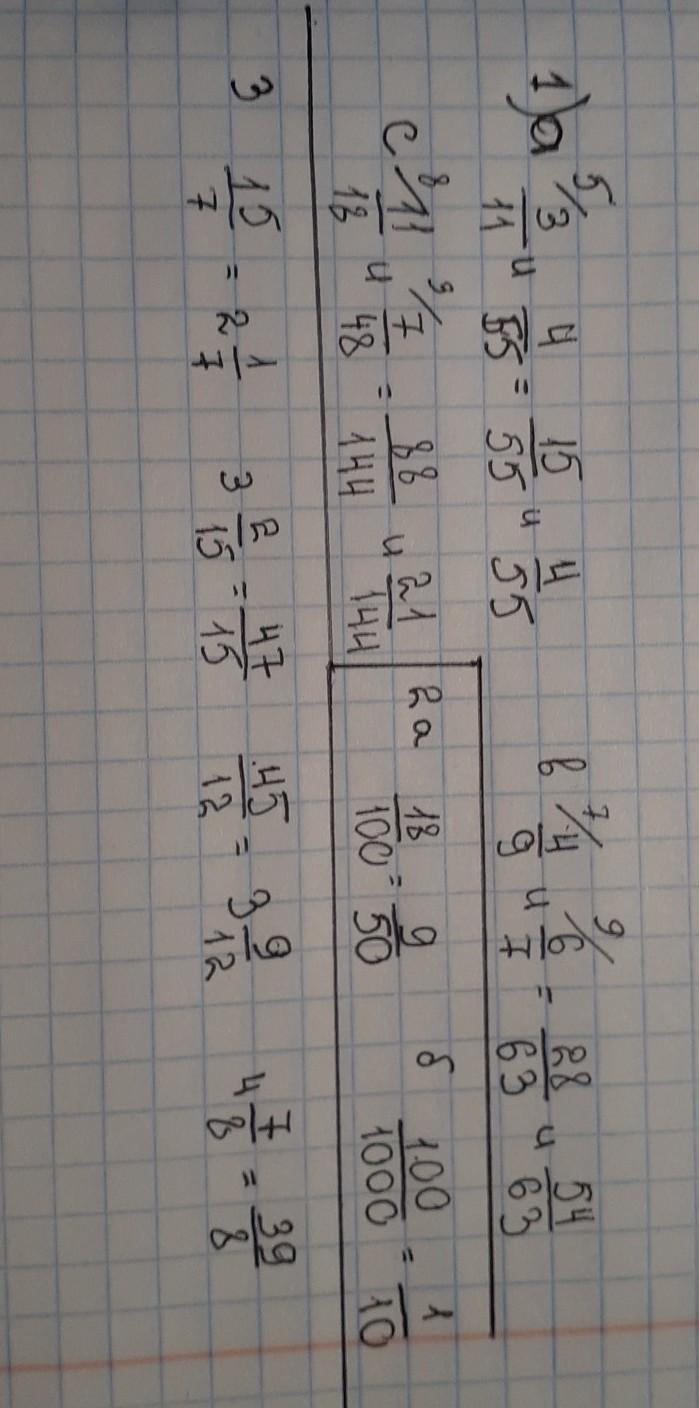 1) a 5/ 3/11 и 4/55 = 15/55 и 4/55 в 7/ 4/9 и 9/ 6/7 = 28/63 и 54/63
с 8/ 11/18 и 9/ 7/48 = 88/144 и 21/144
2 а 18/100 = 9/50 б 100/1000 = 1/10
3 15/7 = 2 1/7 3 2/15 = 47/15 45/12 = 3 9/12 4 7/8 = 39/8